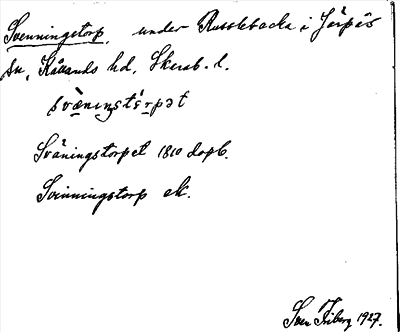 Svenningstorp, under Russlebacka i Järpås
sn, Kållands hd, Skarab. l.
svæ̀niŋstɷ́rpət
Sväningstorpet 1810 dopb.
Svenningstorp ek.
Sven Friberg 1927.